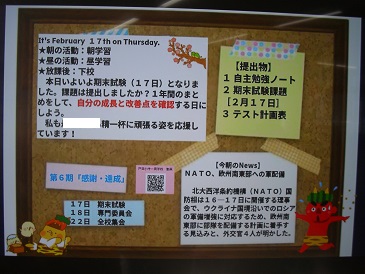 It's February 17th on Thursday.
★朝の活動：朝学習
★昼の活動：昼学習
★放課後：下校
本日いよいよ期末試験（17日）となりま
した。課題は提出しましたか？1年間のまと
めをして、自分の成長と改善点を確認する日に
しよう。
私も
精一杯に頑張る姿を応援し
ています！
【提出物】
1 自主勉強ノート
2 期末試験課題
【2月17日】
3 テスト計画表
第6期「感謝・達成」
17日 期末試験
18日 専門委員会
22日 全校集会
【今朝のNews】
NATO、欧州南東部への軍配備
北大西洋条約機構（NATO）国
防相は16―17日に開催する理事
会で、ウクライナ国境沿いでのロシア
の軍備増強に対応するため、欧州南
東部に部隊を配備する計画に着手す
る見込みと、外交官4人が明かした。